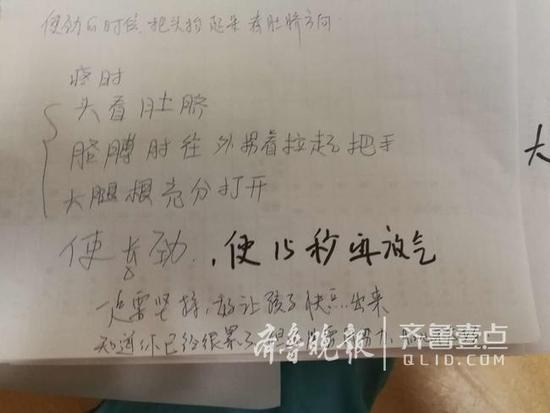 使劲的时候,把头抬起来看肚脐方向.
疼时
头看肚脐
胳膊肘往外拐着拉起把手
大腿根充分打开
使长劲,使15秒再放气
一定要坚持,好让孩子快点出来
知道你已经很累了
大
齐鲁晚报 齐鲁壹点
QLID.COM